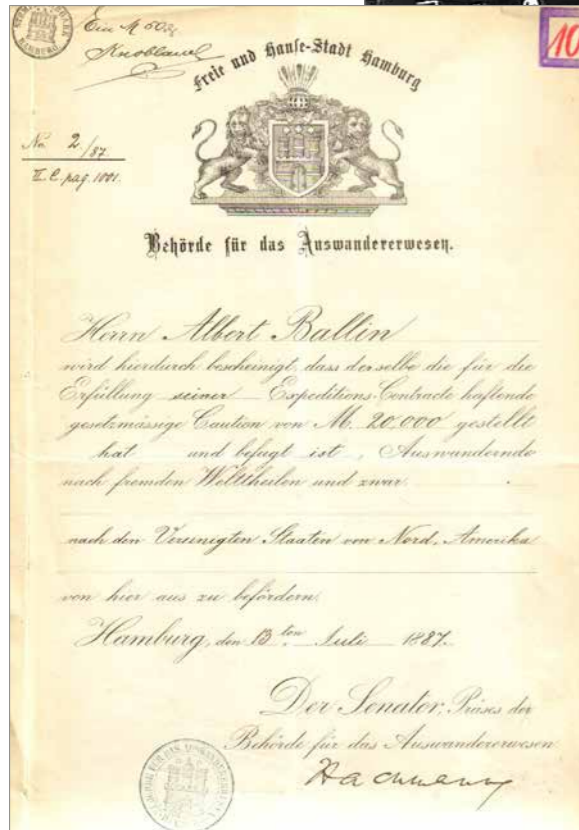 Ein M 50 ₰
10
Freie und Hanse-Stadt Hamburg
No. 2/87
II. C. pag. 1001.
Behörde für das Auswandererwesen.
Herrn Albert Ballin
wird hierdurch bescheinigt, dass derselbe die für die
Erfüllung seiner Expeditions-Contracte haftende
gesetzmässige Caution von M. 20.000 gestellt
hat und befugt ist, Auswandernde
nach fremden Welttheilen und zwar
nach den Vereinigten Staaten von Nord-Amerika
von hier aus zu befördern.
Hamburg, den 13ten Juli 1887.
Der Senator, Präses der
Behörde für das Auswandererwesen
Hachmann